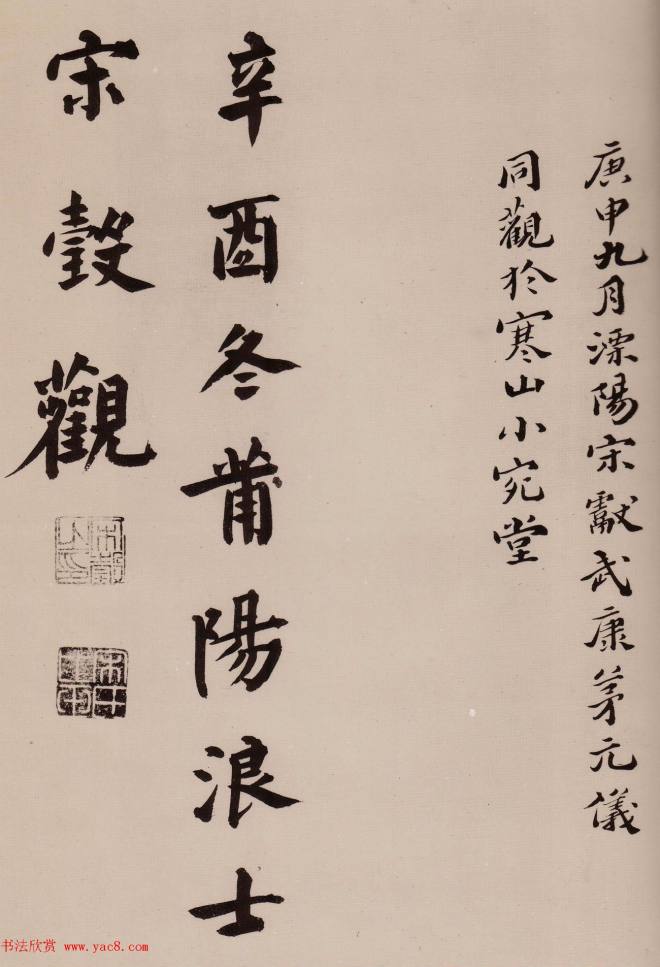 庚申九月溧陽宋獻武康茅元儀
同觀於寒山小宛堂
辛酉冬莆陽浪士
宋瑴觀
書法欣賞 www.yac8.com